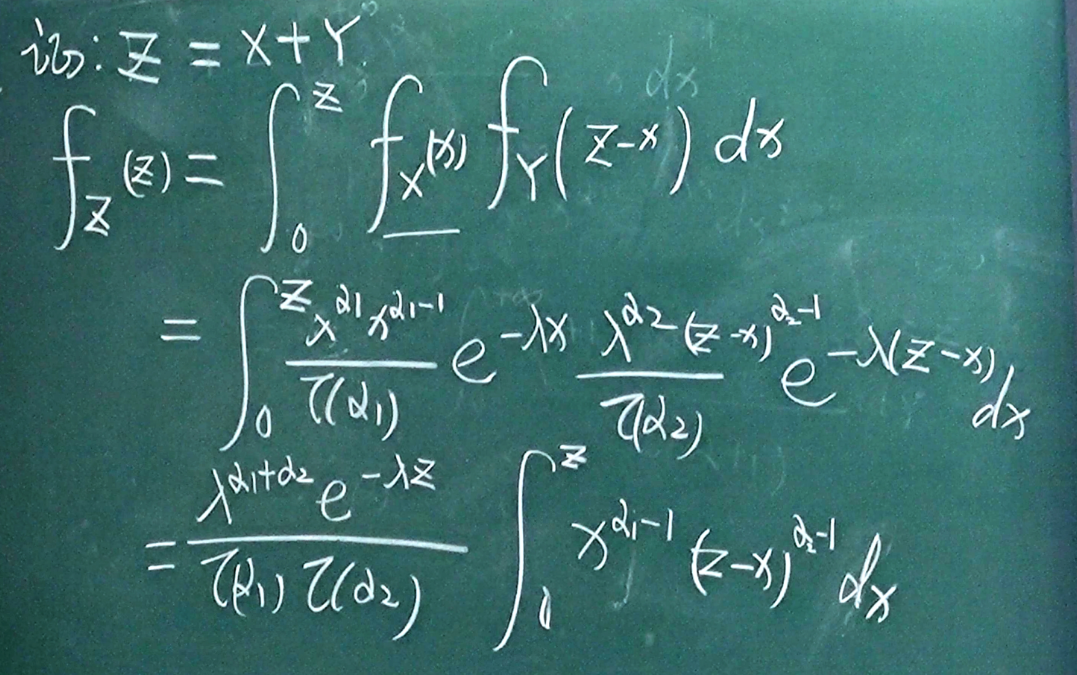 记: Z = X + Y
f_Z(z) = ∫_0^z f_X(x) f_Y(z-x) dx
= ∫_0^z \frac{λ^{α_1} x^{α_1-1}}{Γ(α_1)} e^{-λx} \frac{λ^{α_2} (z-x)^{α_2-1}}{Γ(α_2)} e^{-λ(z-x)} dx
= \frac{λ^{α_1+α_2} e^{-λz}}{Γ(α_1) Γ(α_2)} ∫_0^z x^{α_1-1} (z-x)^{α_2-1} dx